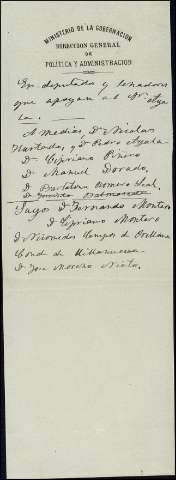 MINISTERIO DE LA GOBERNACIÓN
DIRECCIÓN GENERAL
DE
POLÍTICA Y ADMINISTRACIÓN
diputados y senadores
que apoyan al
la.
A medias, Dn Nicolas
Hurtado, y Dn Pedro Ayala
Dn Cipriano Piñero
Dn Manuel Dorado,
D. Romero Leal,
D.
Suyos D. Fernando Montero
D. Cipriano Montero
D. Nicomedes Campos de Orellana
Conde de Villanueva
D. Jose Moreno Nieto.